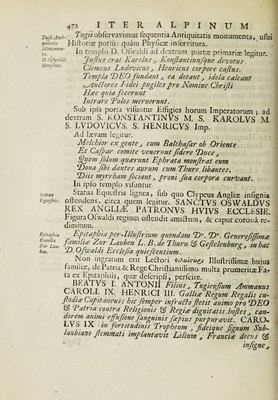 472 ITER ALPINUM
Tugii observavimus sequentia Antiquitatis monumenta, usui
Historiæ potius quàm Physicæ inservitura.
In templo D. Oswaldi ad dextram portæ primariæ legitur.
Justus erat Karolus, Konstantinusque devotus
Clemens Ludovicus, Henricus corpore castus.
Templa DEO fundant, ea dotant, idola calcant
Auctores Fidei pugiles pro Nomine Christi
Hæc quia fecerunt
Intrare Polos meruerunt.
Sub ipsa porta visuntur Effigies horum Imperatorum; ad
dextram S. KONSTANTINVS M. S. KAROLVS M.
S. LVDOVICVS. S. HENRICVS Imp.
Ad lævam legitur.
Melchior ex gente, cum Balthasar ob Oriente
Et Caspar comite venerunt sidere Doce,
Quem solum quærunt Ephrata monstrat eum
Dona sibi dantes aurum cum Thure libantes.
Dic myrrham sociant, proni sua corpora curvant.
In ipso templo visuntur
Statua Equestris lignea, sub quo Clypeus Angliæ insignia
ostendens, circa quem legitur. SANCTVS OSWALDVS
REX ANGLIÆ PATRONVS HVIVS ECCLESIE.
Figura Oswaldi regium ostendit amictum, & caput coronâ re-
dimitum.
Epitaphia per-Illustrium quondam Dn. Dn. Generosissimæ
familiæ Zur Lauben L. B. de Thurn & Gestelenburg, in hac
D. Oswaldi Ecclesia quiescentium.
Non ingratum erit Lectori Illustrissimæ hujus
familiæ, de Patria & Rege Christianissimo multa promeritæ Fa-
ta ex Epitaphiis, quæ descripsi, perficere.
BEATVS I. ANTONII Filius, Tugiensium Ammanus
CAROLI. IX. HENRICI III. Galliæ Regum Regalis cu-
stodiæ Capitaneus: hic semper infracto stetit animo pro DEO
& Patria contra Religionis & Regiæ dignitatis hostes, can-
dorem animi effusione sanguinis sæpius purpuravit. CARO-
LVS IX in fortitudinis Tropheum, fideique signum Sub-
laubiano stemmati implantavit Lilium, Franciæ decus &
insigne,
Statua
Equestris.
Epitaphia
Familiæ
Zur Lau-